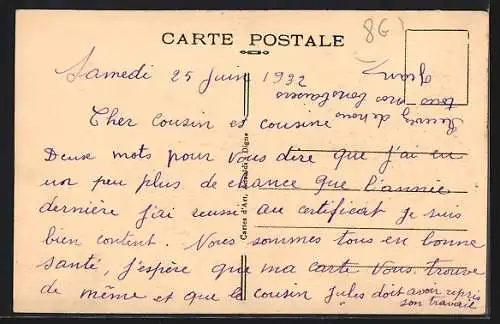 8G
CARTE POSTALE
Samedi 25 Juin 1932
Cher Cousin et cousine
Deux mots pour vous dire que j'ai eu
un peu plus de chance que l'année
dernière j'ai reussi au certificat je suis
bien content. Nous sommes tous en bonne
santé, j'espère que ma carte vous trouve
de même et que le cousin Jules doit avoir repris
son travail
Recevez de nous
tous nos bons baisers
Cartes d'Art, Digne